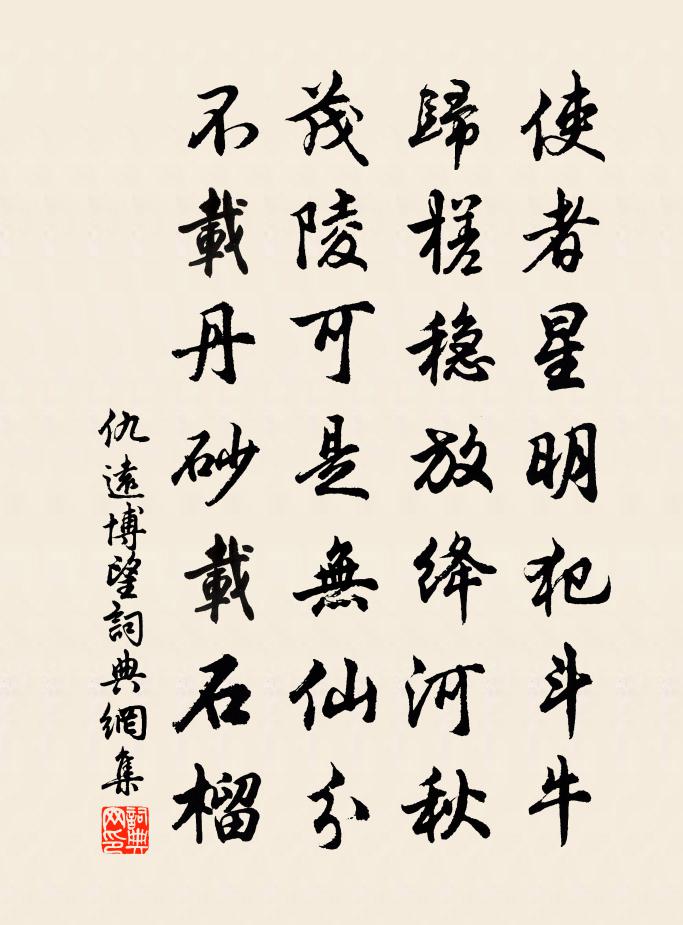 使者星明犯斗牛
歸槎穩放绛河秋
茂陵可是無仙分
不載丹砂載石榴
仇遠博望詞典網集
詞典网印